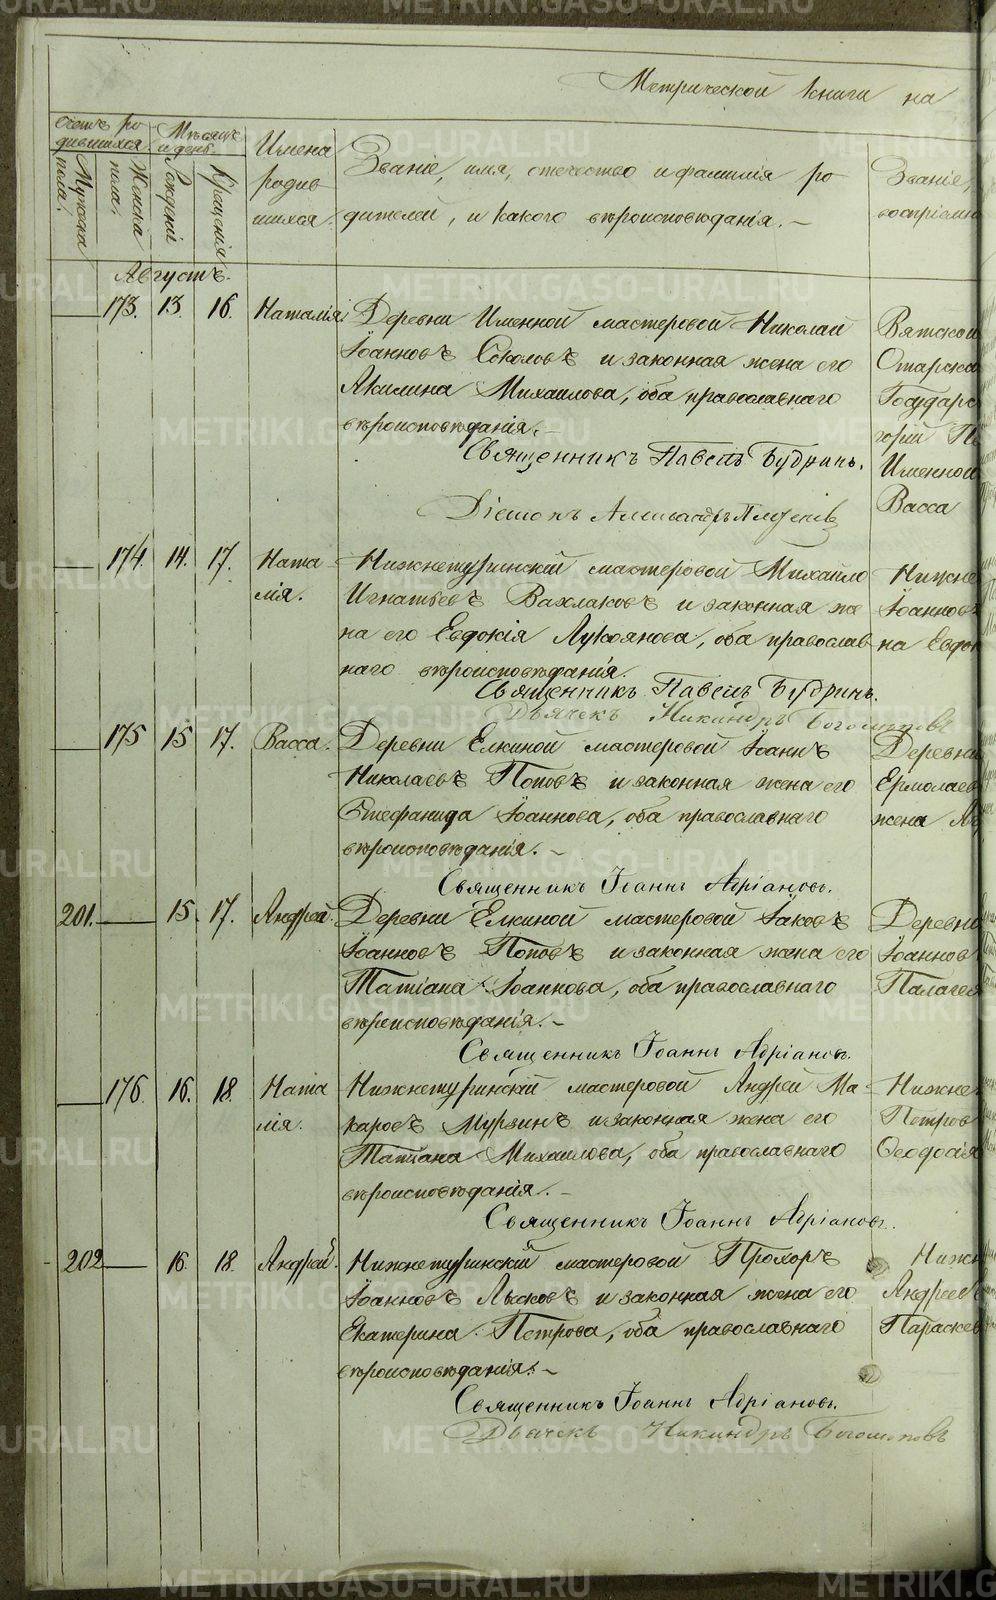 Метрической книги на
Счетъ ро
дившихся.
Мужска
пола.
Женска
пола.
Мѣсяцъ
и день.
Рожденій
Крещенія
Имена
родив
шихся.
Званіе, имя, отечество и фамилія ро
дителей, и какого вѣроисповѣданія. –
Званіе,
воспріемн
Августъ.
173. 13. 16. Наталія Деревни Именной мастеровой Николай
Іоанновъ Соколовъ и законная жена его
Акилина Михаилова, оба православнаго
вѣроисповѣданія. –
Священникъ Павелъ Будринъ.
Діаконъ
Вятской
Отарска
Государс
горій Пе
Именной
Васса
174. 14. 17. Ната
лія.
Нижнетуринскій мастеровой Михайло
Игнатьевъ Вахлаковъ и законная же
на его Евдокія Лукоянова, оба православ
наго вѣроисповѣданія.
Священникъ Павелъ Будринъ.
Дьячекъ Никандръ Богомоловъ
Нижне
Іоановъ
на Евдок
175 15 17. Васса. Деревни Елкиной мастеровой Іоаннъ
Николаевъ Поповъ и законная жена его
Стефанида Іоаннова, оба православнаго
вѣроисповѣданія. –
Священникъ Іоаннъ Адріановъ.
Деревни
Ермолаев
жена
201. 15. 17. Андрей. Деревни Елкиной мастеровой Іаковъ
Іоанновъ Поповъ и законная жена его
Татіана Іоаннова, оба православнаго
вѣроисповѣданія. –
Священникъ Іоаннъ Адріановъ.
Деревни
Іоаннов
Палагея
176. 16. 18. Ната
лія.
Нижнетуринскій мастеровой Андрей Ма
каровъ Мурзинъ и законная жена его
Татіана Михаилова, оба православнаго
вѣроисповѣданія. –
Священникъ Іоаннъ Адріановъ.
Нижне
Петров
Ѳеодосія
202 16 18. Андрей. Нижнетуринскій мастеровой Прохоръ
Іоанновъ Лысковъ и законная жена его
Екатерина Петрова, оба православнаго
вѣроисповѣданія. –
Священникъ Іоаннъ Адріановъ.
Дьячекъ Никандръ Богомоловъ
Нижн
Андреев
Параскев
METRIKI.GASO-URAL.RU